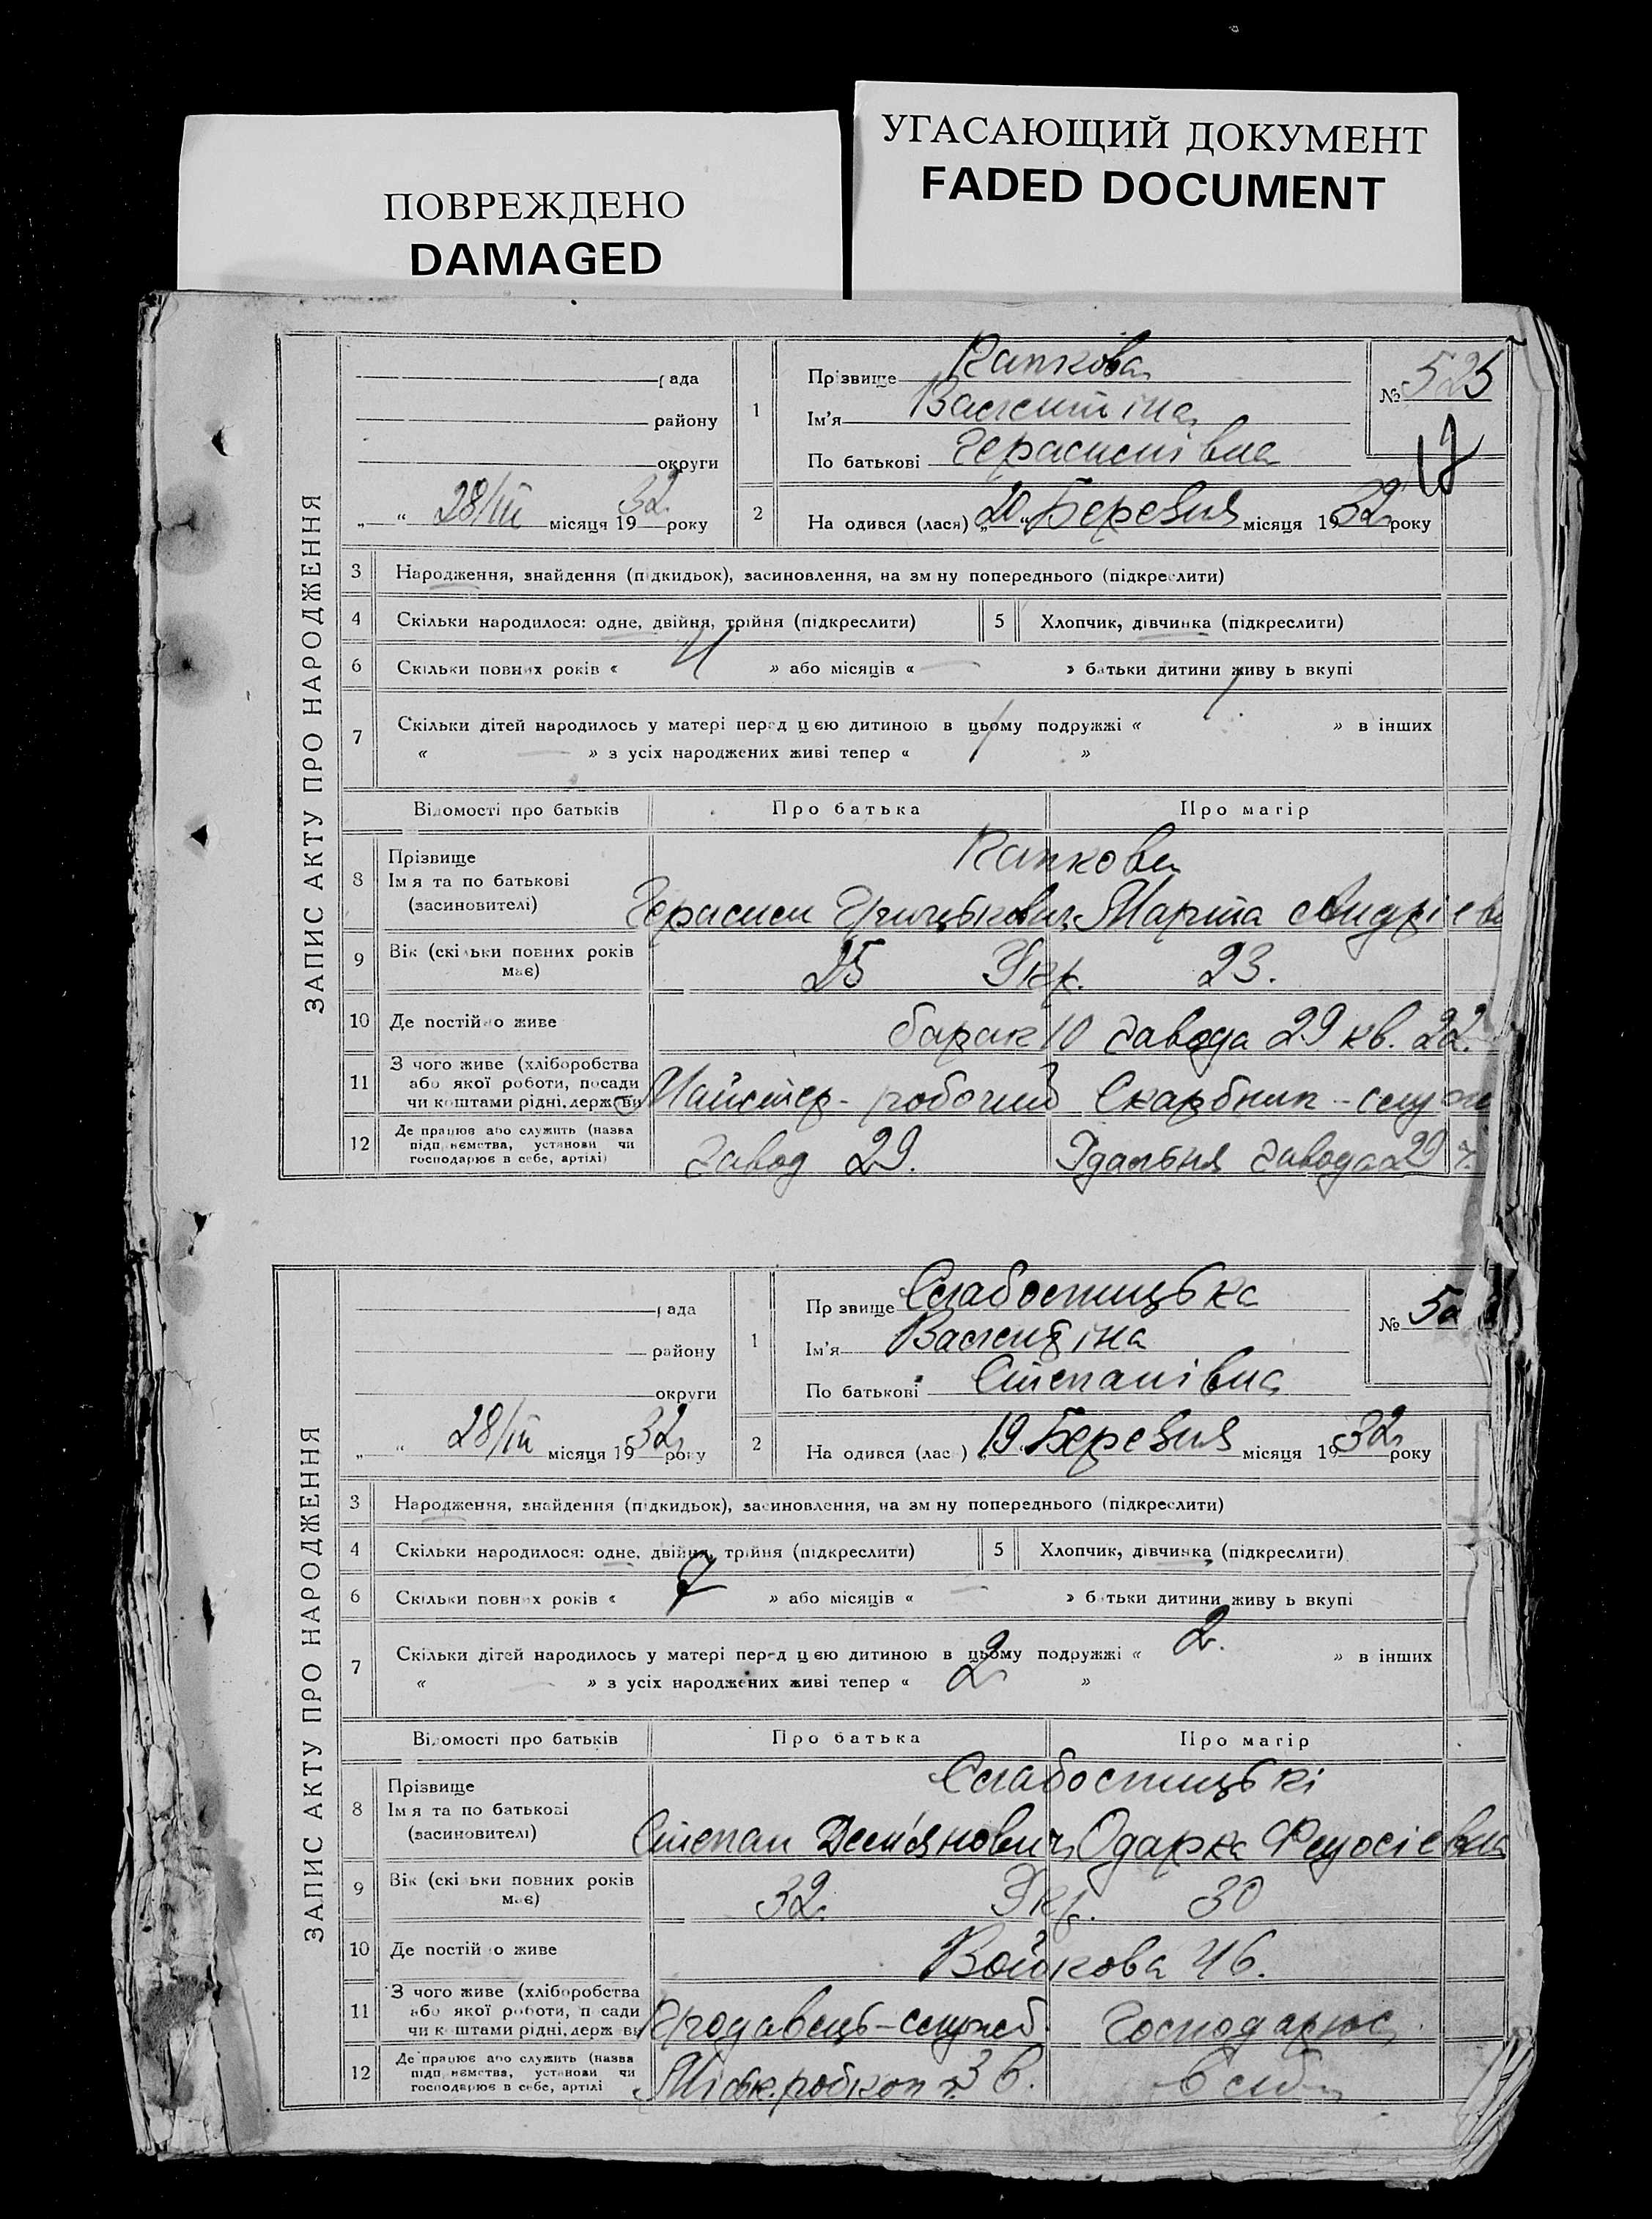 ПОВРЕЖДЕНО
DAMAGED
УГАСАЮЩИЙ ДОКУМЕНТ
FADED DOCUMENT
ЗАПИС АКТУ ПРО НАРОДЖЕННЯ
рада
району
округи
„ “ 28/III місяця 1932 року
1
Прізвище Капкова
Ім'я Валентіна
По батькові Герасимівна
№ 525
17
2 На одився (лася) „20“ Березня місяця 1932 року
3 Народження, знайдення (підкидьок), засиновлення, на зм ну попереднього (підкреслити)
4 Скільки народилося: одне, двійня, трійня (підкреслити) 5 Хлопчик, дівчинка (підкреслити)
6 Скільки повних років « 4 » або місяців « — » батьки дитини живу ь вкупі
7 Скільки дітей народилось у матері перед ц ею дитиною в цьому подружжі « 1. » в інших
« — » з усіх народжених живі тепер « 1 »
Відомості про батьків Про батька Про матір
8 Прізвище Капкови
Ім я та по батькові
(засиновителі) Герасим Грицькович Марта Андрієв
9 Вік (скільки повних років має) 25 Укр. 23.
10 Де постійно живе барак 10 завода 29 кв. 22.
11 З чого живе (хліборобства
або якої роботи, посади
чи коштами рідні, держ ви Майстер - робочий Скарбник - служ
12 Де працює або служить (назва
підп ємства, установи чи
господарює в себе, артілі) Завод 29. Їдальня завода 29
ЗАПИС АКТУ ПРО НАРОДЖЕННЯ
рада
району
округи
„ “ 28/III місяця 1932 року
1
Пр звище Слабостицька
Ім'я Валентіна
По батькові Степанівна
№ 52
2 На одився (лас ) „19 Березня місяця 1932 року
3 Народження, знайдення (підкидьок), засиновлення, на зм ну попереднього (підкреслити)
4 Скільки народилося: одне, двійня, трійня (підкреслити) 5 Хлопчик, дівчинка (підкреслити)
6 Скільки повних років « » або місяців « — » батьки дитини живу ь вкупі
7 Скільки дітей народилось у матері перед ц ею дитиною в цьому подружжі « 2. » в інших
« — » з усіх народжених живі тепер « 2 »
Відомості про батьків Про батька Про матір
8 Прізвище Слабостицькі
Ім я та по батькові
(засиновителі) Степан Дем'янович Одарка Федосієвна
9 Вік (скі ьки повних років має) 32. Укр. 30
10 Де постій о живе Войкова 46.
11 З чого живе (хліборобства
або якої роботи, п сади
чи к штами рідні, держ ви Продавець - служб. Господарює
12 Де працює або служить (назва
підп ємства, установи чи
господарює в себе, артілі Міськ.робкоп в себе